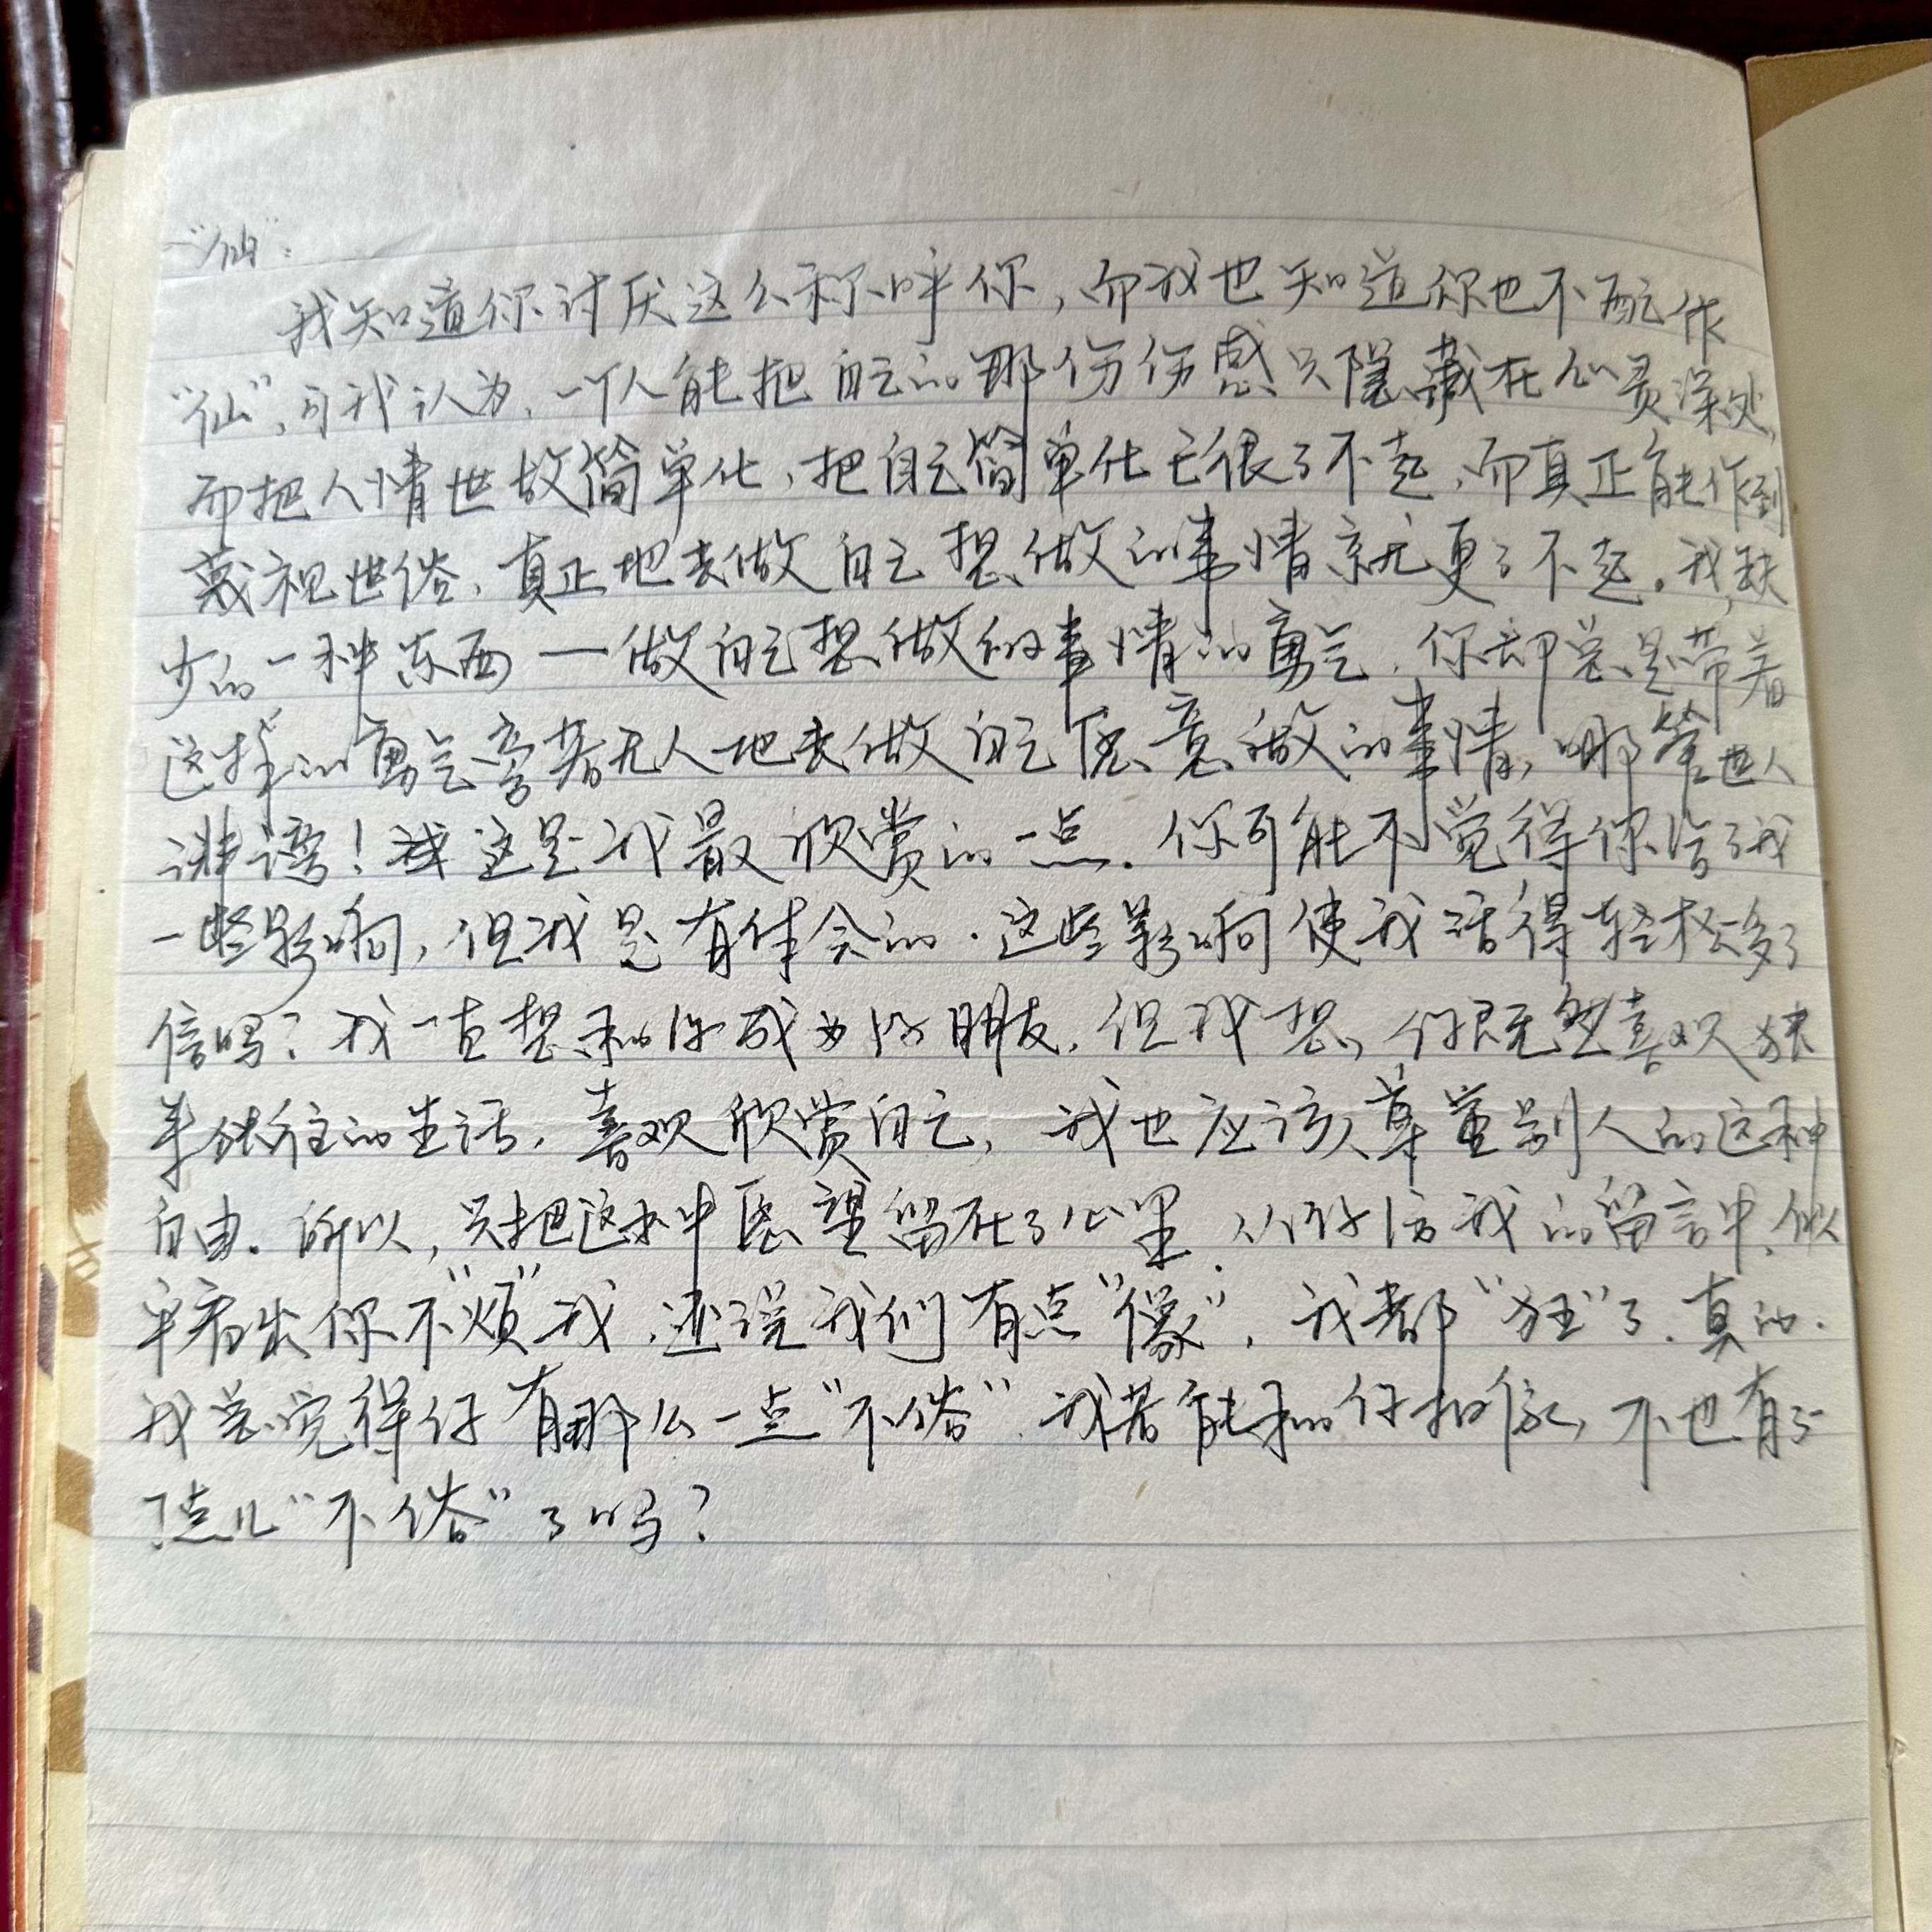 “仙”：
我知道你讨厌这么称呼你，而我也知道你也不配作
“仙”，可我认为，一个人能把自己的那份伤感只隐藏在心灵深处，
而把人情世故简单化，把自己简单化已很了不起，而真正能作到
蔑视世俗，真正地去做自己想做的事情就更了不起。我缺
少的一种东西—做自己想做的事情的勇气，你却总是带着
这样的勇气旁若无人地去做自己愿意做的事情，哪管世人
诽谤！这是我最欣赏的一点。你可能不觉得你给了我
一些影响，但我是有体会的。这些影响使我活得轻松多了
信吗？我一直想和你成为好朋友，但我想，你既然喜欢独
来独往的生活，喜欢欣赏自己，我也应该尊重别人的这种
自由。所以，只把这种愿望留在了心里，从你给我的留言中，似
乎看出你不“烦”我，还说我们有点“像”，我都“狂”了，真的。
我总觉得你有那么一点“不俗”，我若能和你相像，不也有了
点儿“不俗”了吗？